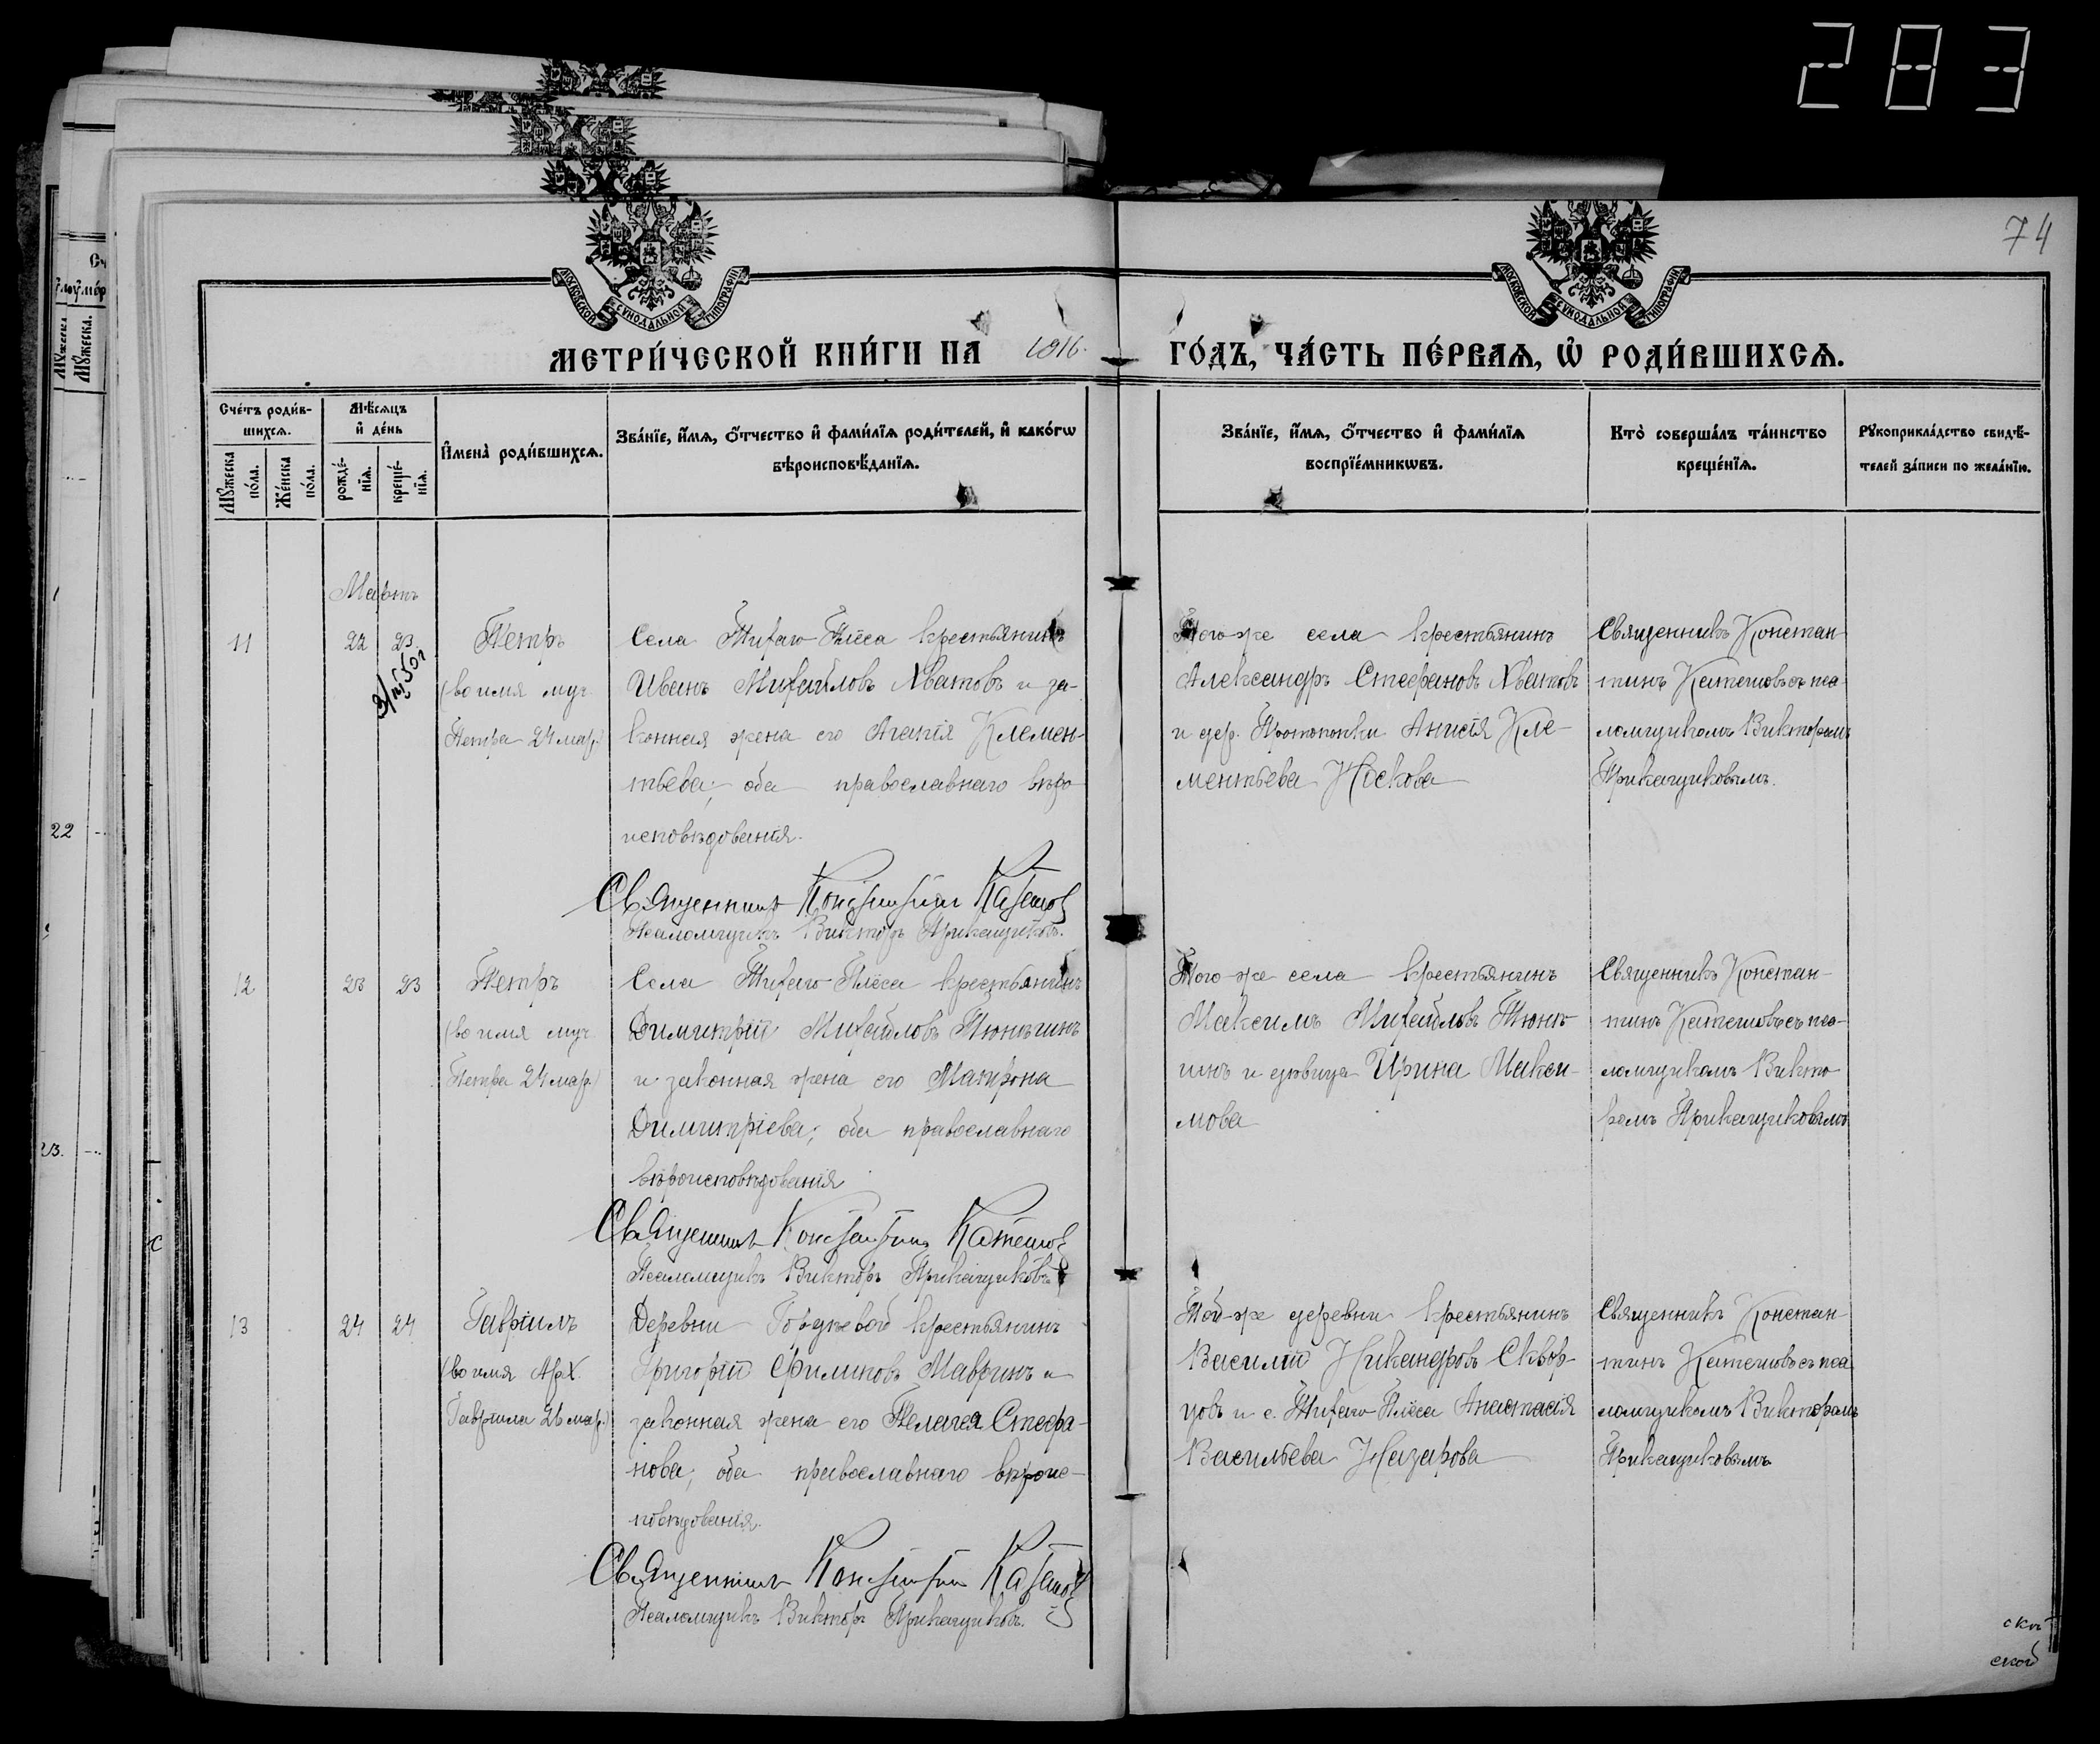 283
74
МОСКОВСКОЙ СѴНОДАЛЬНОЙ ТИПОГРАФІИ
МОСКОВСКОЙ СѴНОДАЛЬНОЙ ТИПОГРАФІИ
МЕТРИ́ЧЕСКОЙ КНИ́ГИ НА 1916. ГО́ДЪ, ЧА́СТЬ ПЕ́РВАѦ, Ѽ РОДИ́ВШИХСѦ.
Сче́тъ роди́в-
шихсѧ.
Мꙋжеска
по́ла.
Же́нска
по́ла.
Мѣ́сѧцъ
и҆ де́нь
рожде́-
нїѧ.
креще́-
нїѧ.
И҆мена̀ роди́вшихсѧ.
Зва́нїе, и҆́мѧ, ѻ҆́тчество и҆ фами́лїѧ роди́телей, и҆ како́гѡ
вѣроисповѣ́данїѧ.
Зва́нїе, и҆́мѧ, ѻ҆́тчество и҆ фами́лїѧ
воспрїе́мникѡвъ.
Кто̀ соверша́лъ та́инство
креще́нїѧ.
Рꙋкоприкла́дство свидѣ́-
телей за́писи по жела́нїю.
Мартъ
11
22
23.
Петръ
(во имя муч.
Петра 24 мар.)
Села Тихаго-Плёса крестьянинъ
Иванъ Михайловъ Хватовъ и за-
конная жена его Агапія Клемен-
тьева; оба православнаго вѣро-
исповѣдованія.
Священникъ Константин Катешов
Псаломщикъ Викторъ Прикащиковъ.
Того-же села крестьянинъ
Александръ Стефановъ Хватовъ
и дер. Протопопки Анисія Кле-
ментьева Носкова
Священникъ Констан-
тинъ Катешовъ съ пса-
ломщикомъ Викторомъ
Прикащиковымъ.
12
23
23
Петръ
(во имя муч.
Петра 24 мар.)
Села Тихаго-Плёса крестьянинъ
Димитрій Михайловъ Тюнъшнъ
и законная жена его Матрона
Димитріева; оба православнаго
вѣроисповѣдованія
Священникъ Константинъ Катешов
Псаломщикъ Викторъ Прикащиковъ
Того-же села крестьянинъ
Максимъ Михайловъ
и дѣвица Ирина Макси-
мова
Священникъ Констан-
тинъ Катешовъ съ пса-
ломщикомъ Викто-
ромъ Прикащиковымъ
13
24
24
Гавріилъ
(во имя Арх.
Гавріила 26 мар.)
Деревни крестьянинъ
Григорій Филиповъ Мавринъ и
законная жена его Пелагея Стефа-
нова; оба православнаго вѣроис-
повѣдованія.
Священникъ Константин Катешов
Псаломщикъ Викторъ Прикащиковъ.
Той-же деревни крестьянинъ
Василій Никандровъ Сквор-
цовъ и с. Тихаго-Плёса Анастасія
Васильева Назарова
Священникъ Констан-
тинъ Катешовъ съ пса-
ломщикомъ Викторомъ
Прикащиковымъ
22
23.